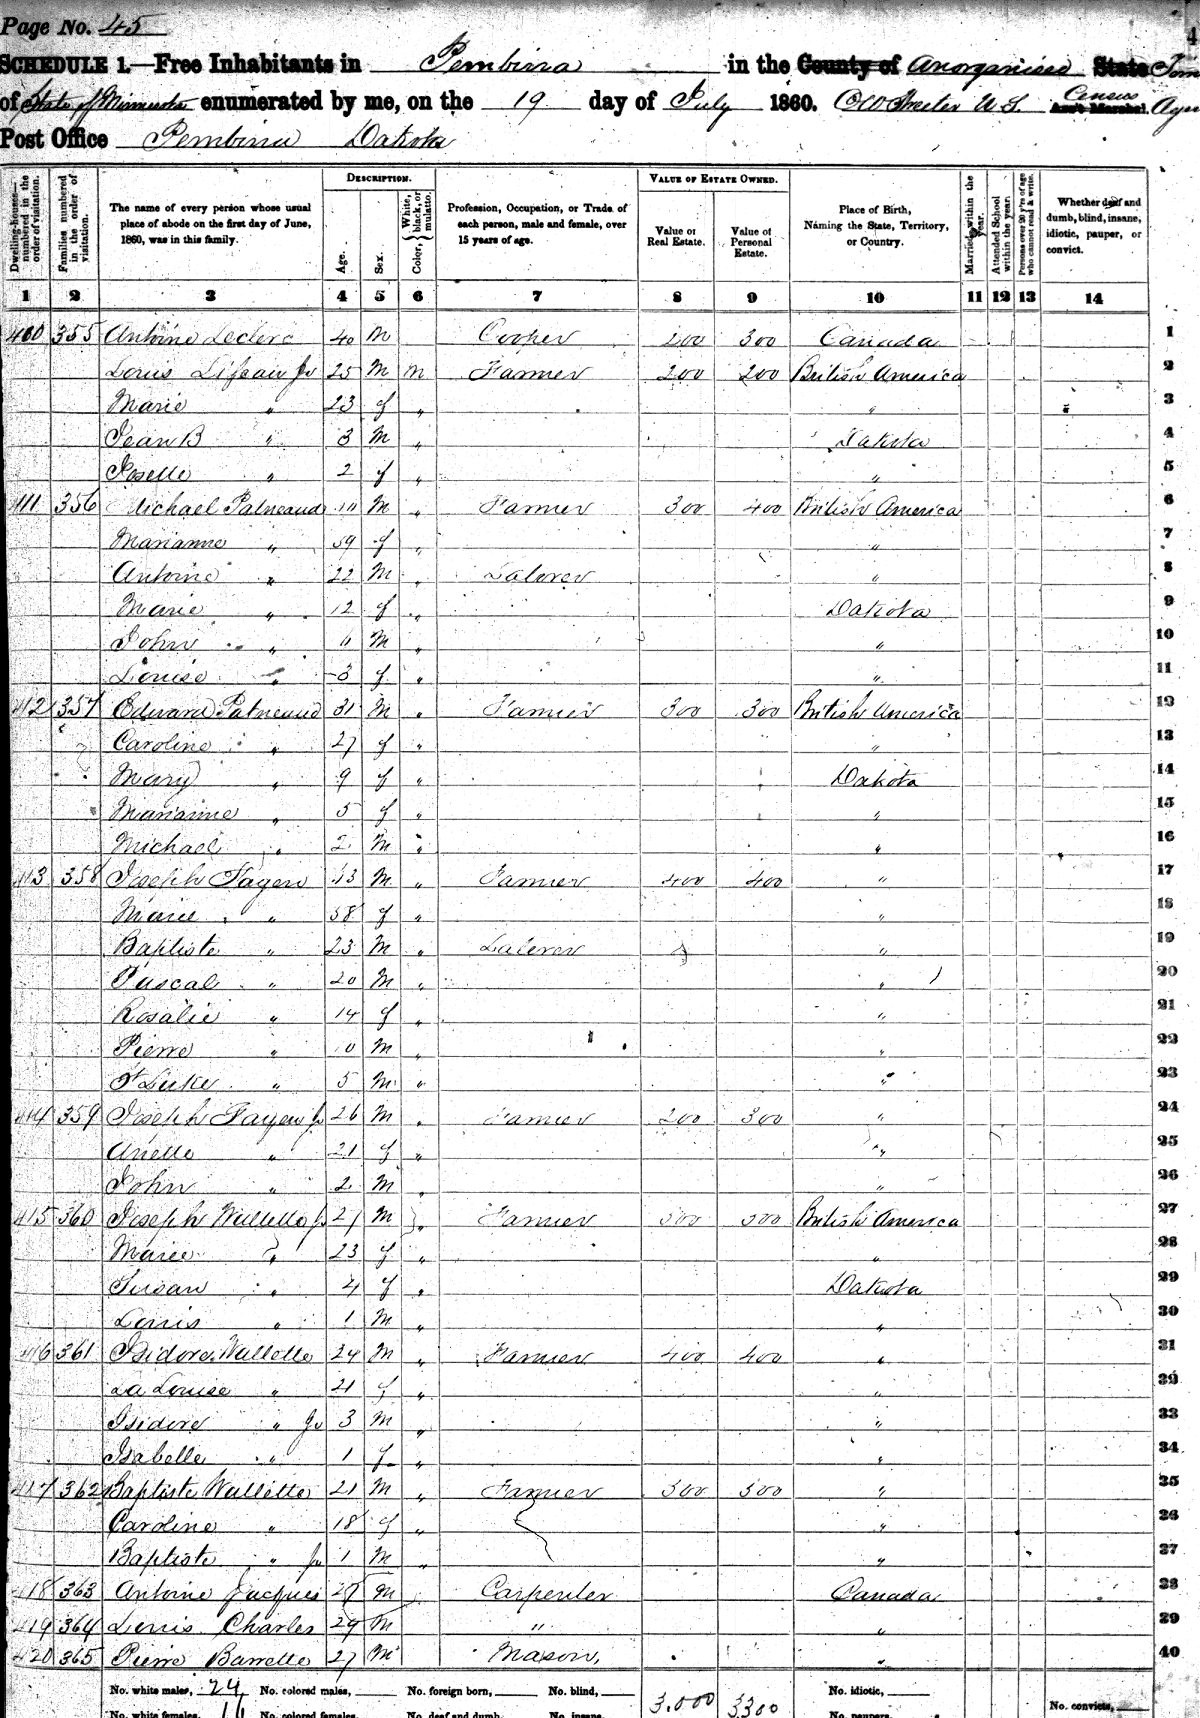 Page No. 45
4
SCHEDULE 1.—Free Inhabitants in Pembina in the County of Unorganised State
of State of Minnesota enumerated by me, on the 19 day of July 1860. U.S. Census Ass't Marshal.
Post Office Pembina Dakota
DESCRIPTION. VALUE OF ESTATE OWNED.
Dwelling-houses—numbered in the order of visitation. Families numbered in the order of visitation. The name of every person whose usual place of abode on the first day of June, 1860, was in this family. Age. Sex. Color, {White, black, or mulatto. Profession, Occupation, or Trade of each person, male and female, over 15 years of age. Value of Real Estate. Value of Personal Estate. Place of Birth, Naming the State, Territory, or Country. Married within the year. Attended School within the year. Persons over 20 y'rs of age who cannot read & write. Whether deaf and dumb, blind, insane, idiotic, pauper, or convict.
1 2 3 4 5 6 7 8 9 10 11 12 13 14
410 355 Antoine Leclerc 40 M Cooper 200 300 Canada 1
Louis Jr 25 M M Farmer 200 200 British America 2
Marie " 23 f " " 3
Jean B " 3 M " Dakota 4
Josette " 2 f " " 5
411 356 Michael Patneaud M " Farmer 300 400 British America 6
Marianne " 59 f " " 7
Antoine " 22 M " Laborer " 8
Marie " 12 f " Dakota 9
John " 11 M " " 10
Louise " 3 f " " 11
412 357 Edward Patneaud 31 M " Farmer 300 300 British America 12
Caroline " 27 f " " 13
Mary " 9 f " Dakota 14
Marianne " 5 f " " 15
Michael " 2 M " " 16
413 358 Joseph Fayen 43 M " Farmer 400 400 " 17
Marie " 38 f " " 18
Baptiste " 23 M " Laborer " 19
Pascal " 20 M " " 20
Rosalie " 14 f " " 21
Pierre " 10 M " " 22
St Luke " 5 M " " 23
414 359 Joseph Fayen Jr 26 M " Farmer 200 300 " 24
" 21 f " " 25
John " 2 M " " 26
415 360 Joseph Wallette Jr 27 M " Farmer 300 300 British America 27
Marie " 23 f " " 28
Susan " 4 f " Dakota 29
Louis " 1 M " " 30
416 361 Isidore Wallette 24 M " Farmer 400 400 " 31
La Louise " 21 f " " 32
Isidore " Jr 3 M " " 33
Isabelle " 1 f " " 34
417 362 Baptiste Wallette 21 M " Farmer 300 300 " 35
Caroline " 18 f " " 36
Baptiste " Jr 1 M " " 37
418 363 Antoine Jacques 27 M Carpenter Canada 38
419 364 Louis Charles 29 M " " 39
420 365 Pierre Barrette 27 M Mason, " 40
No. white males, 24 No. colored males, No. foreign born, No. blind, 3.000 3300 No. idiotic, No. convicts,
No. white females, 16 No. colored females, No. deaf and dumb, No. insane, No. paupers,